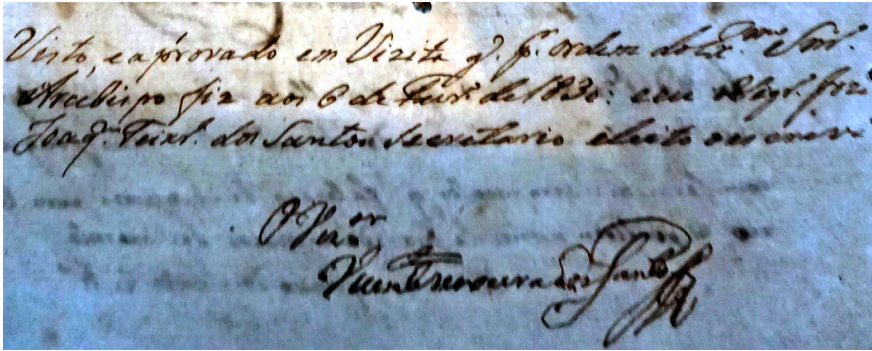 Visto, e aprovado em Vizita q. pr. ordem do Ex.mo Snr.
Arcebispo fiz aos 6 de Fevr.o de 1830. e eu
Joaq.m Teixr.a dos Santos Secretario eleito o escrevi
O Viz.or
Vicente Moura dos Santos